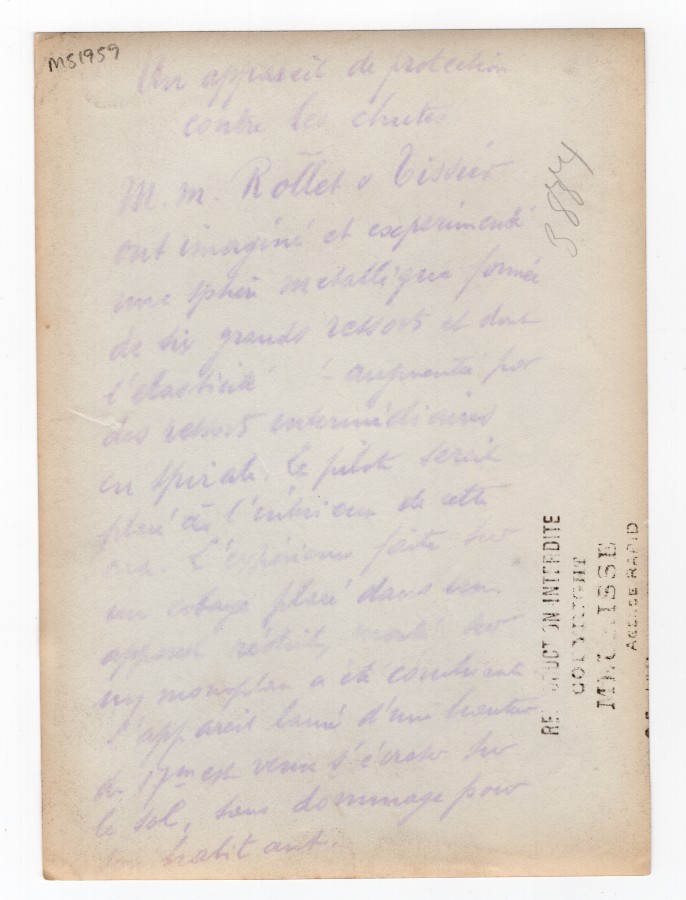 MS1959
Un appareil de protection
contre les chutes
M. M. Rollet & Tissier
ont imaginé et expérimenté
une sphère métallique formée
de six grands ressorts et dont
l'élasticité augmentée par
des ressorts intermédiaires
en spirale. Le pilote serait
placé à l'intérieur de cette
L'expérience faite sur
un cobaye placé dans un
appareil réduit, monté sur
un monoplan a été concluante
l'appareil lancé d'une hauteur
de 17m est venu s'écraser sur
le sol, sans dommage pour
habitant.
REPRODUCTION INTERDITE
COPYRIGHT
MEURISSE
AGENCE RAPID